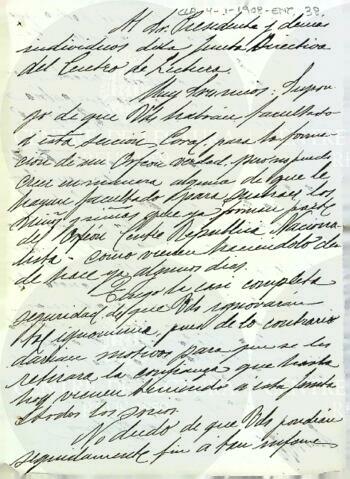 Al Sr. Presidente y demás
individuos de la Junta Directiva
del Centro de Lectura.
Muy Srs mios: Supon
go de que Vds habrán facultado
á esta sección Coral para la forma
ción de un Orfeón verdad, pero no puedo
creer en manera alguna de que le
hayan facultado para
niños y niñas que ya forman parte
del Orfeón Centro Republica Naciona
lista como vienen haciendolo des
de hace ya algunos dias.
Tengo la casi completa
seguridad de que Vds ignoraran
tal ignominia, pues de lo contrario
darian motivos para que se les
retirara la confianza que hasta
hoy vienen teniendo á esta Junta
todos los socios.
No dudo de que Vds pondrán
seguidamente fin á tan infame